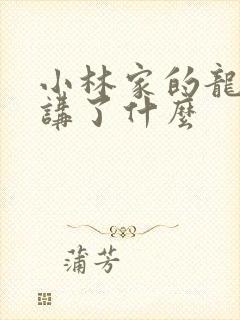 小林家的龍
講了什麼
蒲芳